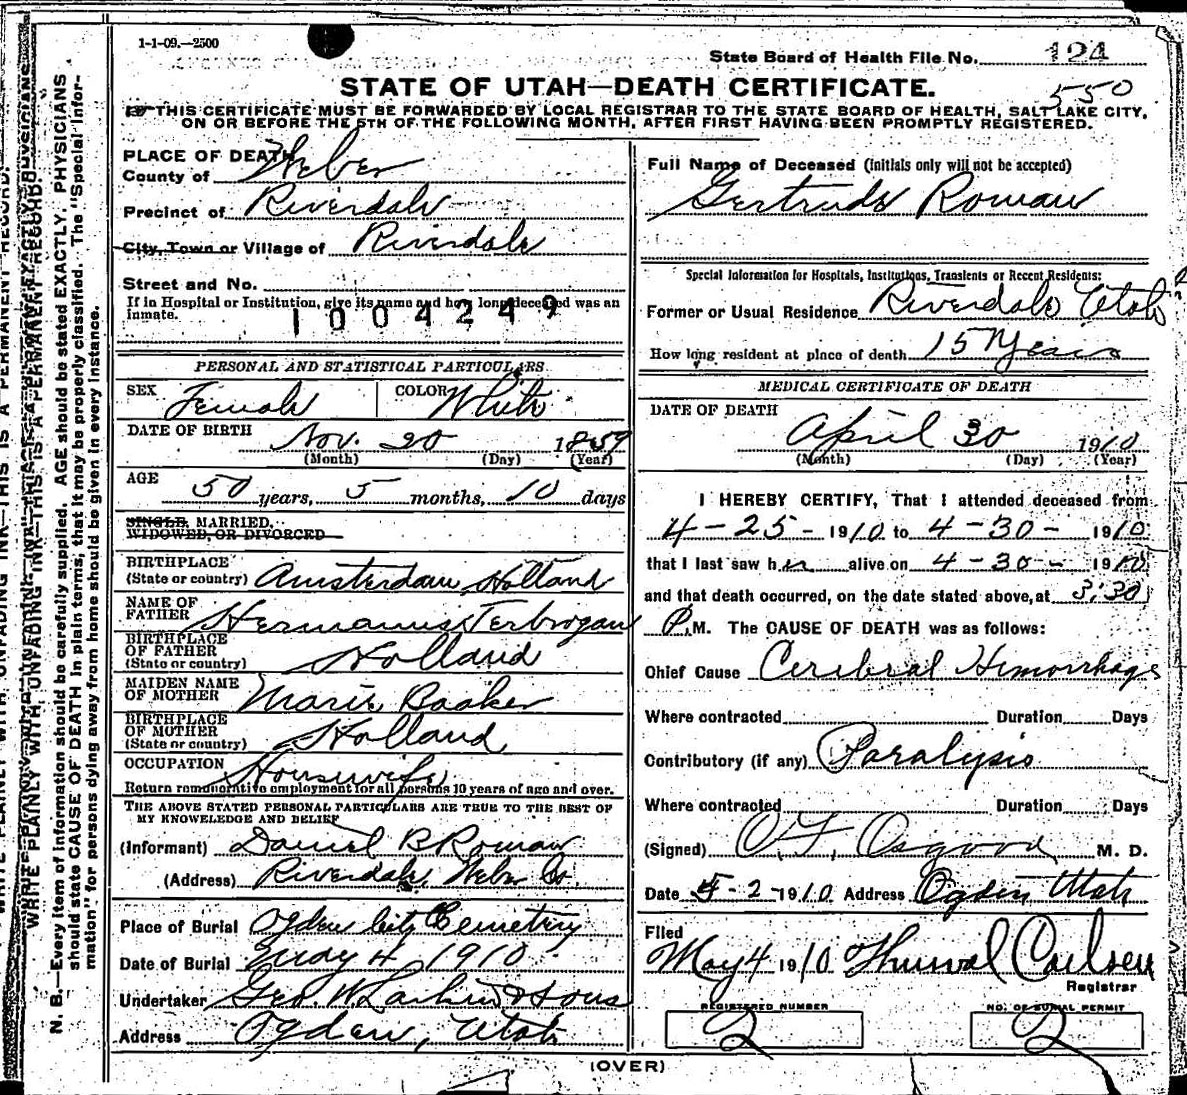 1-1-09.—2500
State Board of Health File No. 124
STATE OF UTAH—DEATH CERTIFICATE.
550
THIS CERTIFICATE MUST BE FORWARDED BY LOCAL REGISTRAR TO THE STATE BOARD OF HEALTH, SALT LAKE CITY,
ON OR BEFORE THE 5TH OF THE FOLLOWING MONTH, AFTER FIRST HAVING BEEN PROMPTLY REGISTERED.
PLACE OF DEATH
County of Weber
Precinct of Riverdale
City, Town or Village of Riverdale
Street and No.
If in Hospital or Institution, give its name and how long deceased was an
inmate.
1004249
PERSONAL AND STATISTICAL PARTICULARS
SEX Female COLOR White
DATE OF BIRTH Nov. 20 1859
(Month) (Day) (Year)
AGE 50 years, 5 months, 10 days
SINGLE, MARRIED,
WIDOWED, OR DIVORCED
BIRTHPLACE
(State or country) Amsterdam, Holland
NAME OF
FATHER Hermanus Terbrogan
BIRTHPLACE
OF FATHER
(State or country) Holland
MAIDEN NAME
OF MOTHER Marie Baaker
BIRTHPLACE
OF MOTHER
(State or country) Holland
OCCUPATION Housewife
Return remunerative employment for all persons 10 years of age and over.
THE ABOVE STATED PERSONAL PARTICULARS ARE TRUE TO THE BEST OF
MY KNOWLEDGE AND BELIEF
(Informant) Daniel B Roman
(Address) Riverdale, Weber Co.
Place of Burial Ogden City Cemetery
Date of Burial May 4, 1910
Undertaker Geo. W. Larkin & Sons
Address Ogden, Utah
Full Name of Deceased (initials only will not be accepted)
Gertrude Roman
Special Information for Hospitals, Institutions, Transients or Recent Residents:
Former or Usual Residence Riverdale Utah
How long resident at place of death 15 Years
MEDICAL CERTIFICATE OF DEATH
DATE OF DEATH
April 30 1910
(Month) (Day) (Year)
I HEREBY CERTIFY, That I attended deceased from
4-25-1910 to 4-30-1910
that I last saw her alive on 4-30-1910
and that death occurred, on the date stated above, at 3:30
P.M. The CAUSE OF DEATH was as follows:
Chief Cause Cerebral Hemorrhage
Where contracted Duration Days
Contributory (if any) Paralysis
Where contracted Duration Days
(Signed) O. F. Osgood M. D.
Date 5-2-1910 Address Ogden Utah
Filed
May 4 1910 Thurval Carlsen
Registrar
REGISTERED NUMBER
2
NO. OF BURIAL PERMIT
2
(OVER)
WRITE PLAINLY WITH UNFADING INK—THIS IS A PERMANENT RECORD.
N. B.—Every item of information should be carefully supplied. AGE should be stated EXACTLY. PHYSICIANS
should state CAUSE OF DEATH in plain terms, that it may be properly classified. The "Special Infor-
mation" for persons dying away from home should be given in every instance.